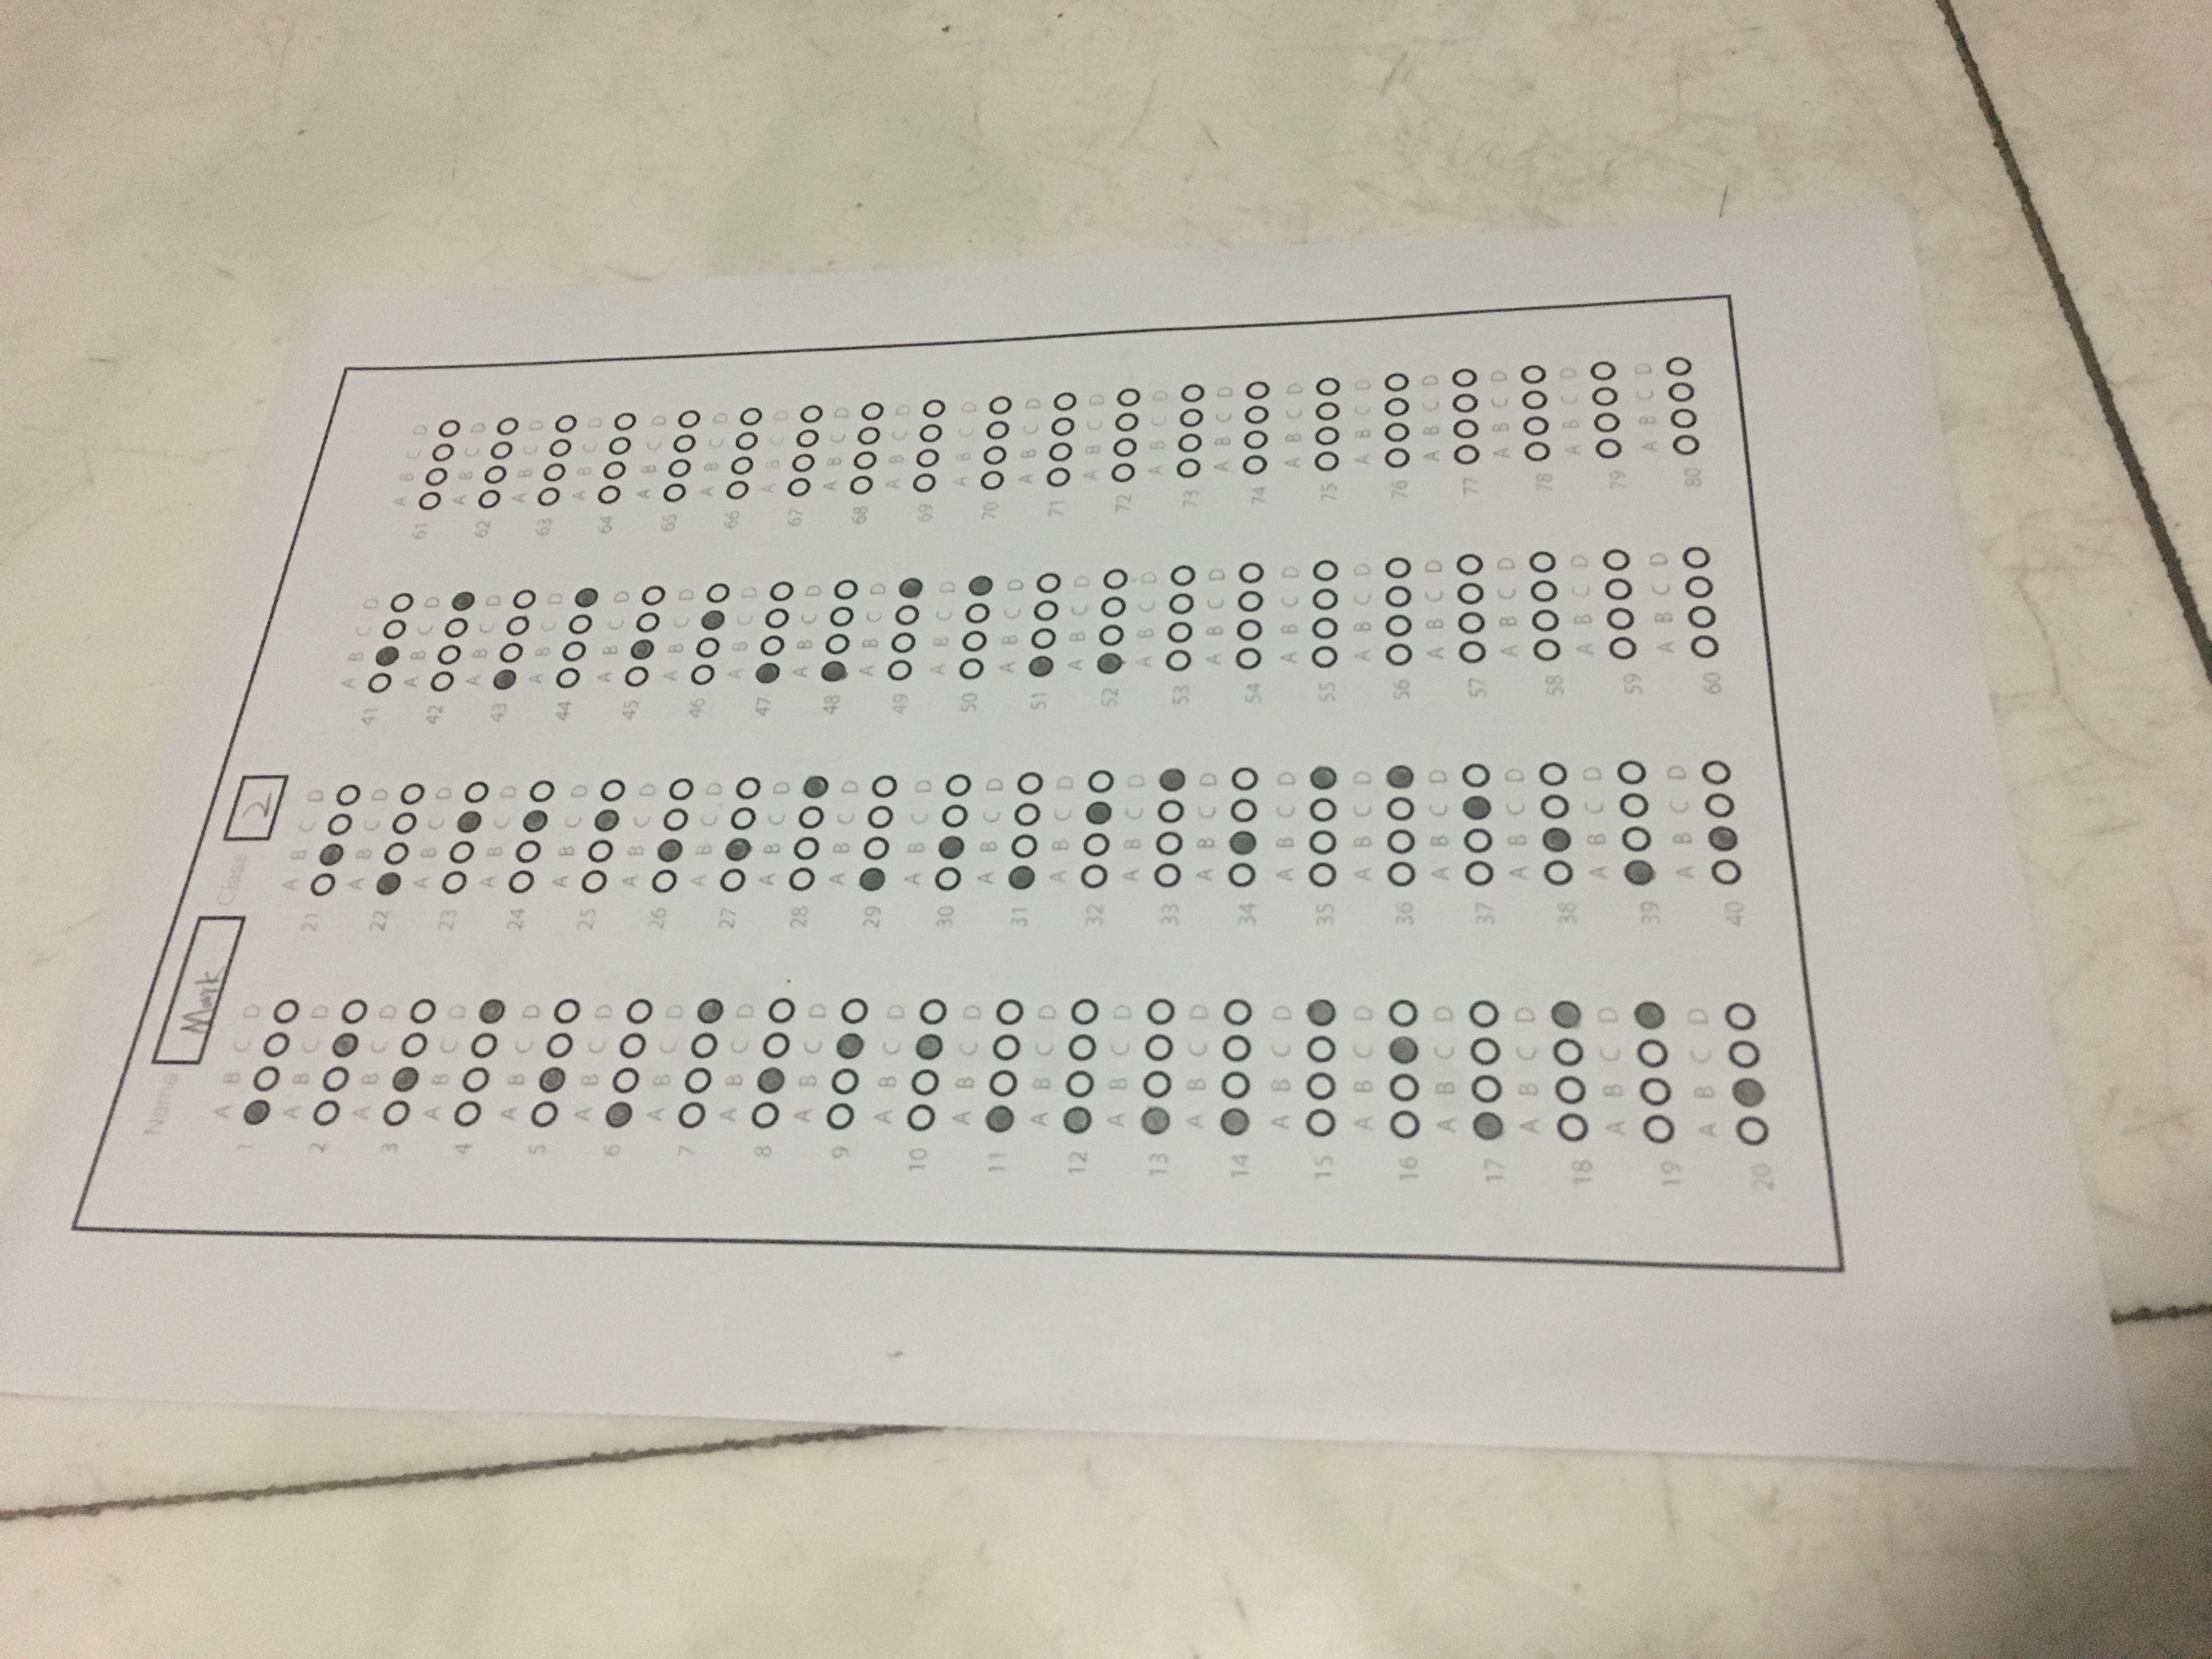 Name Mark Class 2
A B C D
1
A B C D
2
A B C D
3
A B C D
4
A B C D
5
A B C D
6
A B C D
7
A B C D
8
A B C D
9
A B C D
10
A B C D
11
A B C D
12
A B C D
13
A B C D
14
A B C D
15
A B C D
16
A B C D
17
A B C D
18
A B C D
19
A B C D
20
A B C D
21
A B C D
22
A B C D
23
A B C D
24
A B C D
25
A B C D
26
A B C D
27
A B C D
28
A B C D
29
A B C D
30
A B C D
31
A B C D
32
A B C D
33
A B C D
34
A B C D
35
A B C D
36
A B C D
37
A B C D
38
A B C D
39
A B C D
40
A B C D
41
A B C D
42
A B C D
43
A B C D
44
A B C D
45
A B C D
46
A B C D
47
A B C D
48
A B C D
49
A B C D
50
A B C D
51
A B C D
52
A B C D
53
A B C D
54
A B C D
55
A B C D
56
A B C D
57
A B C D
58
A B C D
59
A B C D
60
A B C D
61
A B C D
62
A B C D
63
A B C D
64
A B C D
65
A B C D
66
A B C D
67
A B C D
68
A B C D
69
A B C D
70
A B C D
71
A B C D
72
A B C D
73
A B C D
74
A B C D
75
A B C D
76
A B C D
77
A B C D
78
A B C D
79
A B C D
80